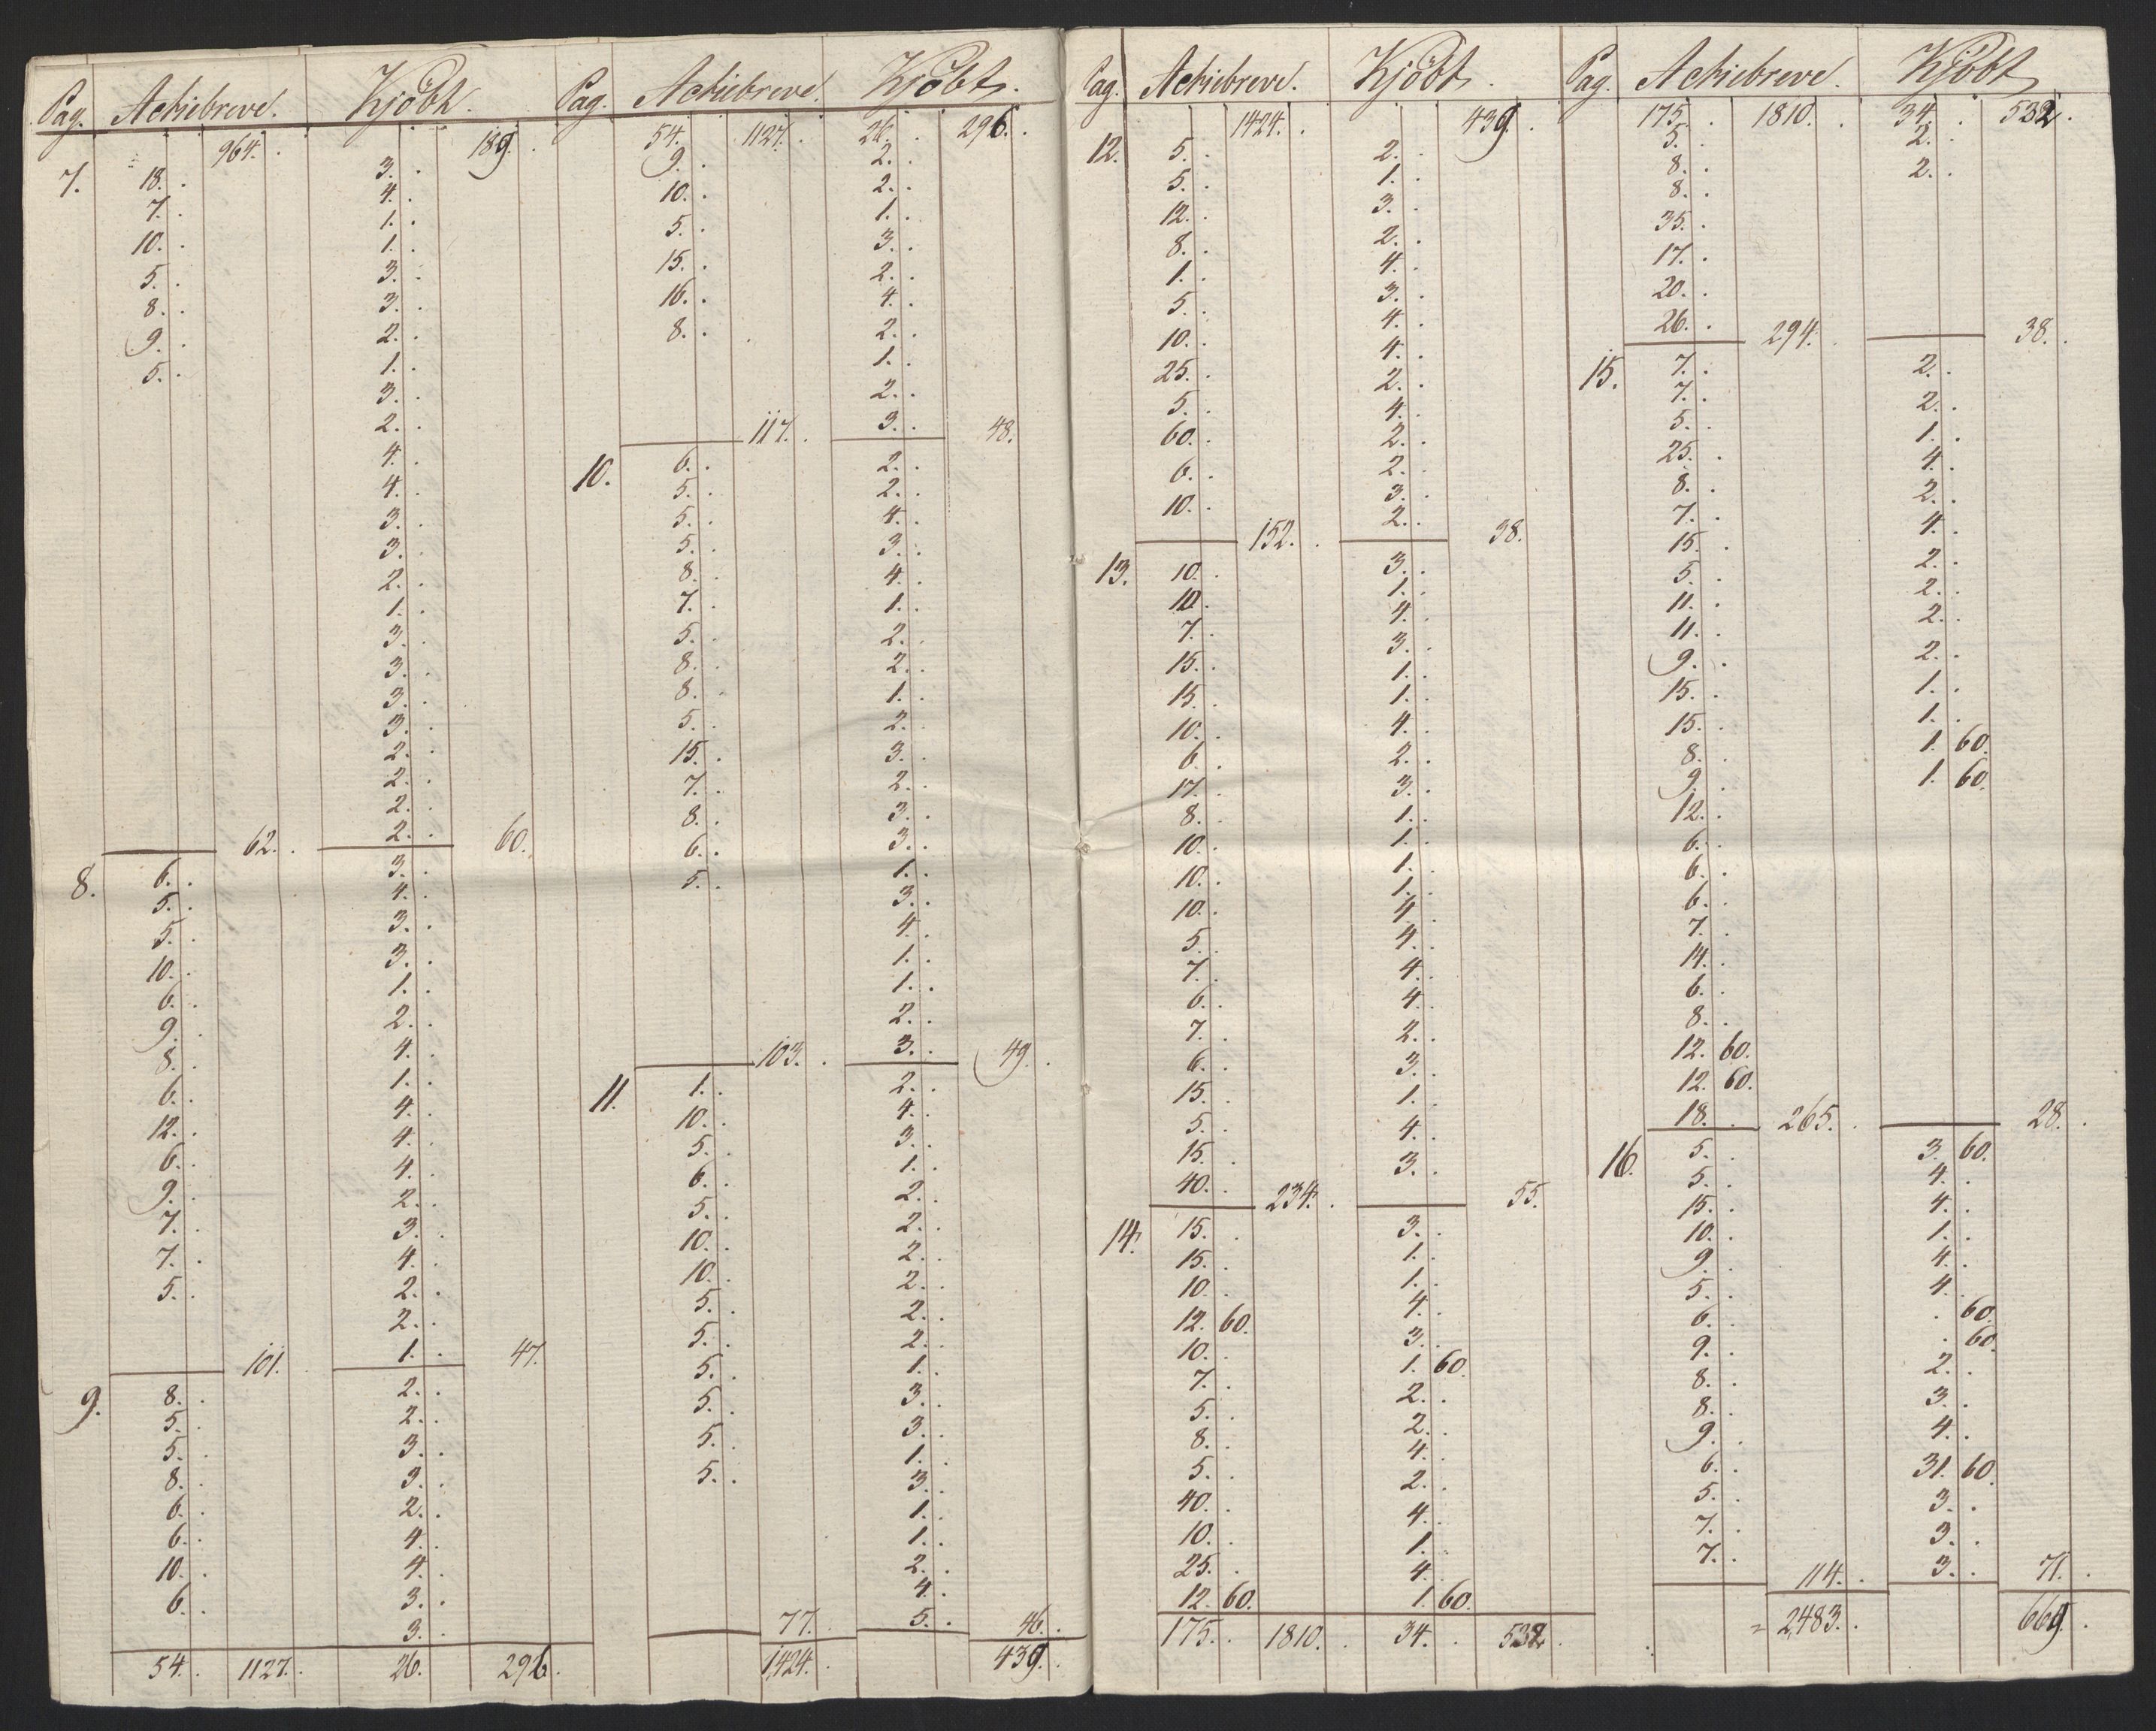 Pag. Actiebreve. Kjöbt.
964. 189.
7. 18. 3.
7. 4.
10. 1.
5. 1.
8. 3.
9. 3.
5. 2.
1.
3.
2.
4.
4.
3.
3.
2.
1.
3.
3.
3.
3.
2.
2.
2.
62. 2. 60.
8. 6. 3.
5. 4.
5. 3.
10. 3.
6. 1.
9. 2.
8. 4.
6. 1.
12. 4.
6. 4.
9. 4.
7. 2.
7. 3.
5. 4.
2.
2.
101. 1. 47.
9. 8. 2.
5. 2.
5. 3.
8. 3.
6. 2.
6. 4.
10. 4.
6. 3.
3.
54. 1127. 26. 296.
Pag. Actiebreve. Kjöbt.
54. 1127. 26. 296.
9. 2.
10. 2.
5. 1.
15. 3.
16. 2.
8. 4.
2.
1.
2.
117. 3. 48.
10. 6. 2.
5. 2.
5. 4.
5. 3.
8. 4.
7. 1.
5. 2.
8. 2.
8. 1.
5. 2.
15. 3.
7. 2.
8. 3.
6. 3.
5. 1.
3.
4.
1.
1.
2.
103. 3. 49.
11. 1. 2.
10. 4.
5. 3.
6. 1.
5. 2.
10. 2.
10. 2.
5. 2.
5. 2.
5. 2.
5. 1.
5. 3.
5. 3.
1.
3.
1.
1.
2.
4.
77. 5. 46.
1424. 439.
Pag. Actiebreve. Kjöbt.
1424. 439.
12. 5. 2.
5. 1.
12. 3.
8. 2.
1. 4.
5. 3.
10. 4.
25. 4.
5. 2.
60. 4.
6. 2.
10. 2.
3.
152. 2. 38.
13. 10. 3.
10. 1.
7. 4.
15. 3.
15. 1.
10. 1.
6. 4.
17. 2.
8. 3.
10. 1.
10. 1.
10. 1.
5. 1.
7. 4.
6. 4.
7. 4.
6. 4.
15. 2.
5. 3.
15. 1.
40. 4.
234. 3. 55.
14. 15. 3.
15. 1.
10. 1.
12. 60. 4.
10. 3.
7. 1. 60.
5. 2.
8. 2.
5. 4.
40. 2.
10. 4.
25. 1.
12. 60. 4.
1. 60.
175. 1810. 34. 532.
Pag. Actiebreve. Kjöbt
175. 1810. 34. 532.
5. 2.
8. 2.
8.
35.
17.
20.
26. 294. 38.
15. 7. 2.
7. 2.
5. 1.
25. 4.
8. 2.
7. 4.
15. 2.
5. 2.
11. 2.
11. 2.
9. 1.
15. 1.
15. 1. 60.
8. 1. 60.
9.
12.
6.
6.
6.
7.
14.
6.
8.
12. 60.
12. 60.
18. 265. 28.
16. 5. 3. 60.
5. 4.
15. 4.
10. 1.
9. 4.
5. 4.
6. 60.
9. 60.
8. 2.
8. 3.
9. 4.
6. 31. 60.
5. 3.
7. 3.
7. 114. 3. 71.
= 2,483. 669.